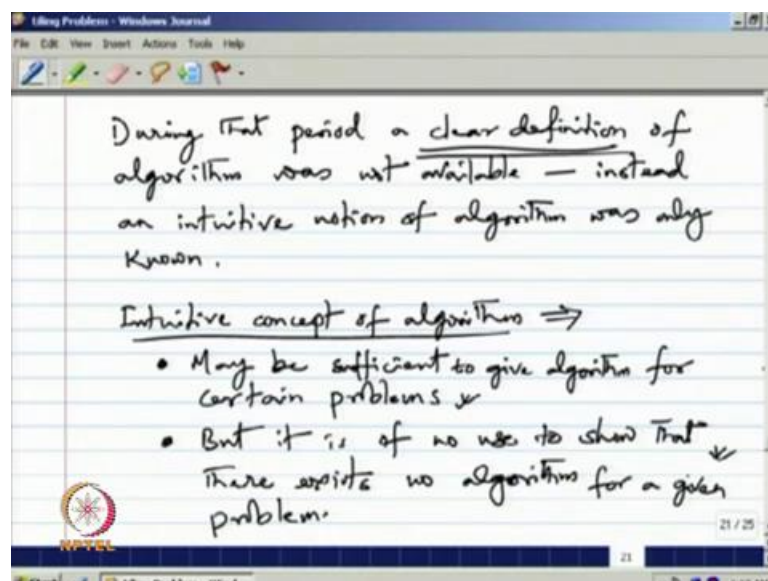 tiling Problem - Windows Journal
File Edit View Insert Actions Tools Help
During that period a clear definition of
algorithm was not available — instead
an intuitive notion of algorithm was only
known.
Intuitive concept of algorithm ⇒
• May be sufficient to give algorithm for
certain problems
• But it is of no use to show that
there exists no algorithm for a given
problem.
NPTEL
21 / 25
21